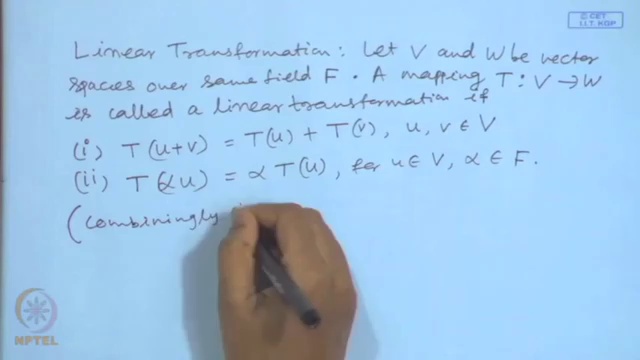 © CET
I.I.T. KGP
Linear Transformation: Let V and W be vector
spaces over same field F. A mapping T: V → W
is called a linear transformation if
(i) T(u+v) = T(u) + T(v), u, v ∈ V
(ii) T(αu) = α T(u), for u ∈ V, α ∈ F.
(Combiningly
NPTEL